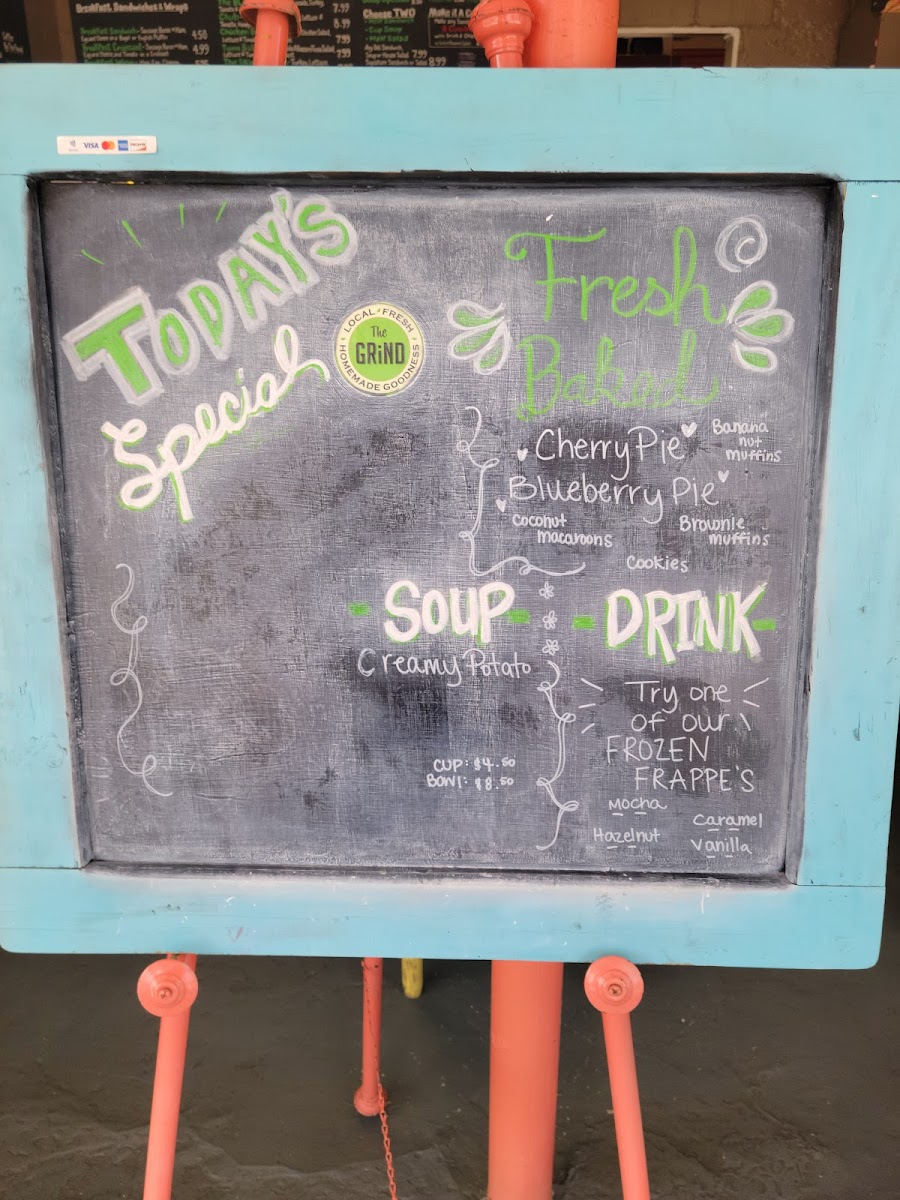 Breakfast Sandwiches & Wraps
4.50
4.99
7.99
7.99
7.99
Choose TWO
Cup Soup
8.99
VISA
TODAY'S
Special
LOCAL FRESH
The
GRiND
HOMEMADE GOODNESS
Fresh
Baked
Cherry Pie
Banana
nut
muffins
Blueberry Pie
Coconut
macaroons
Brownie
muffins
Cookies
- SOUP -
Creamy Potato
CUP: $4.50
BOWl: $8.50
- DRINK -
Try one
of our
FROZEN
FRAPPE'S
Mocha
Caramel
Hazelnut
Vanilla